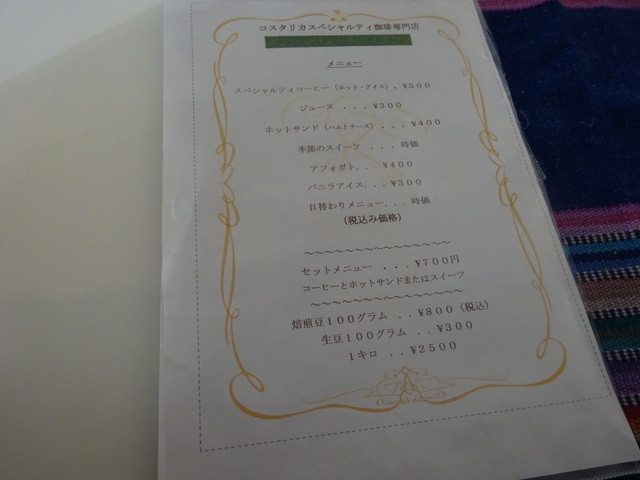 コスタリカスペシャルティ珈琲専門店
メニュー
スペシャルティコーヒー（ホット・アイス）．¥500
ジュース ．．．¥300
ホットサンド（ハムとチーズ）．．．¥400
季節のスイーツ ．．．時価
アフォガト．．．¥400
バニラアイス．．．¥300
日替わりメニュー．．．時価
（税込み価格）
～～～～～～～～～～～～～～～
セットメニュー ．．．¥700円
コーヒーとホットサンドまたはスイーツ
～～～～～～～～～～～～～～～
焙煎豆100グラム ．．¥800（税込）
生豆100グラム ．．¥300
1キロ ．．¥2500